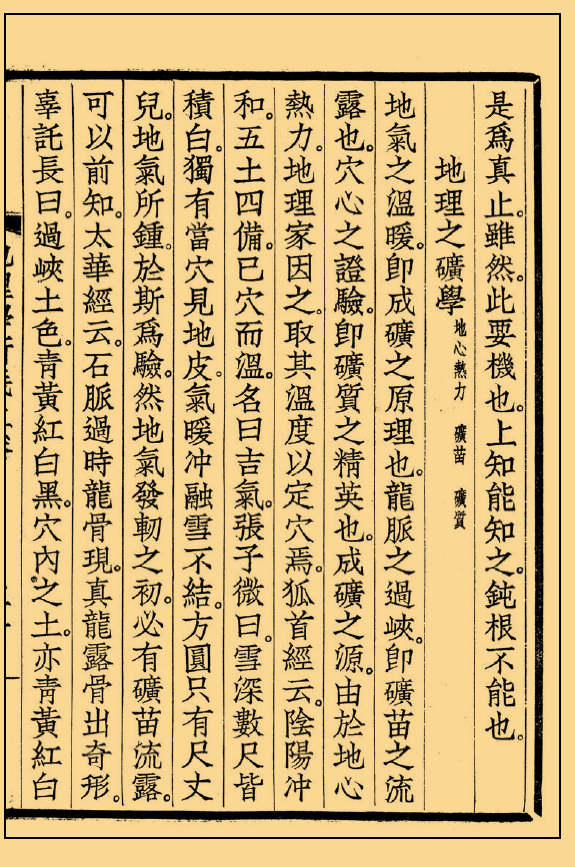 是爲真止。雖然。此要機也。上知能知之。鈍根不能也。
地理之礦學 地心熱力 礦苗 礦質
地氣之溫暖。卽成礦之原理也。龍脈之過峽。卽礦苗之流
露也。穴心之證驗。卽礦質之精英也。成礦之源。由於地心
熱力。地理家因之。取其溫度以定穴焉。狐首經云。陰陽冲
和。五土四備。巳穴而溫。名曰吉氣。張子微曰。雪深數尺皆
積白。獨有當穴見地皮。氣暖冲融雪不結。方圓只有尺丈
兒。地氣所鍾。於斯爲驗。然地氣發軔之初。必有礦苗流露。
可以前知。太華經云。石脈過時龍骨現。真龍露骨出奇形。
辜託長曰。過峽土色。靑黃紅白黑。穴內之土。亦靑黃紅白